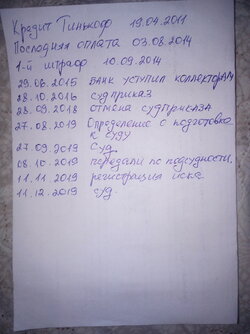 Кредит Тинькоф 19.04.2011
Последняя оплата 03.08.2014
1-й штраф 10.09.2014
29.06.2015 Банк уступил коллекторам
28.10.2016 суд приказ
28.09.2018 отмена суд приказа
27.08.2019 Определение о подготовке
к суду
27.09.2019 Суд
08.10.2019 передали по подсудности.
11.11.2019 регистрация иска
11.12.2019 суд.